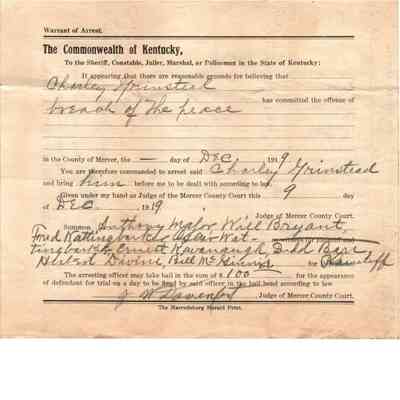 Warrant of Arrest.
The Commonwealth of Kentucky,
To the Sheriff, Constable, Jailer, Marshal, or Policemen in the State of Kentucky:
It appearing that there are reasonable grounds for believing that
Charley Grinstead
has committed the offense of
breach of the peace
in the County of Mercer, the — day of DEC. 1919
You are therefore commanded to arrest said Charley Grinstead
and bring him before me to be dealt with according to law.
Given under my hand as Judge of the Mercer County Court, this 9 day
of DEC. 1919
Judge of Mercer County Court.
Summon Anthony Will Bryant,
Fred
Emett Kavanaugh,
Divine, Bill for Plaintiff
The arresting officer may take bail in the sum of $100 for the appearance
of defendant for trial on a day to be fixed by said officer in the bail bond according to law
J W Davenport Judge of Mercer County Court.
The Harrodsburg Herald Print.